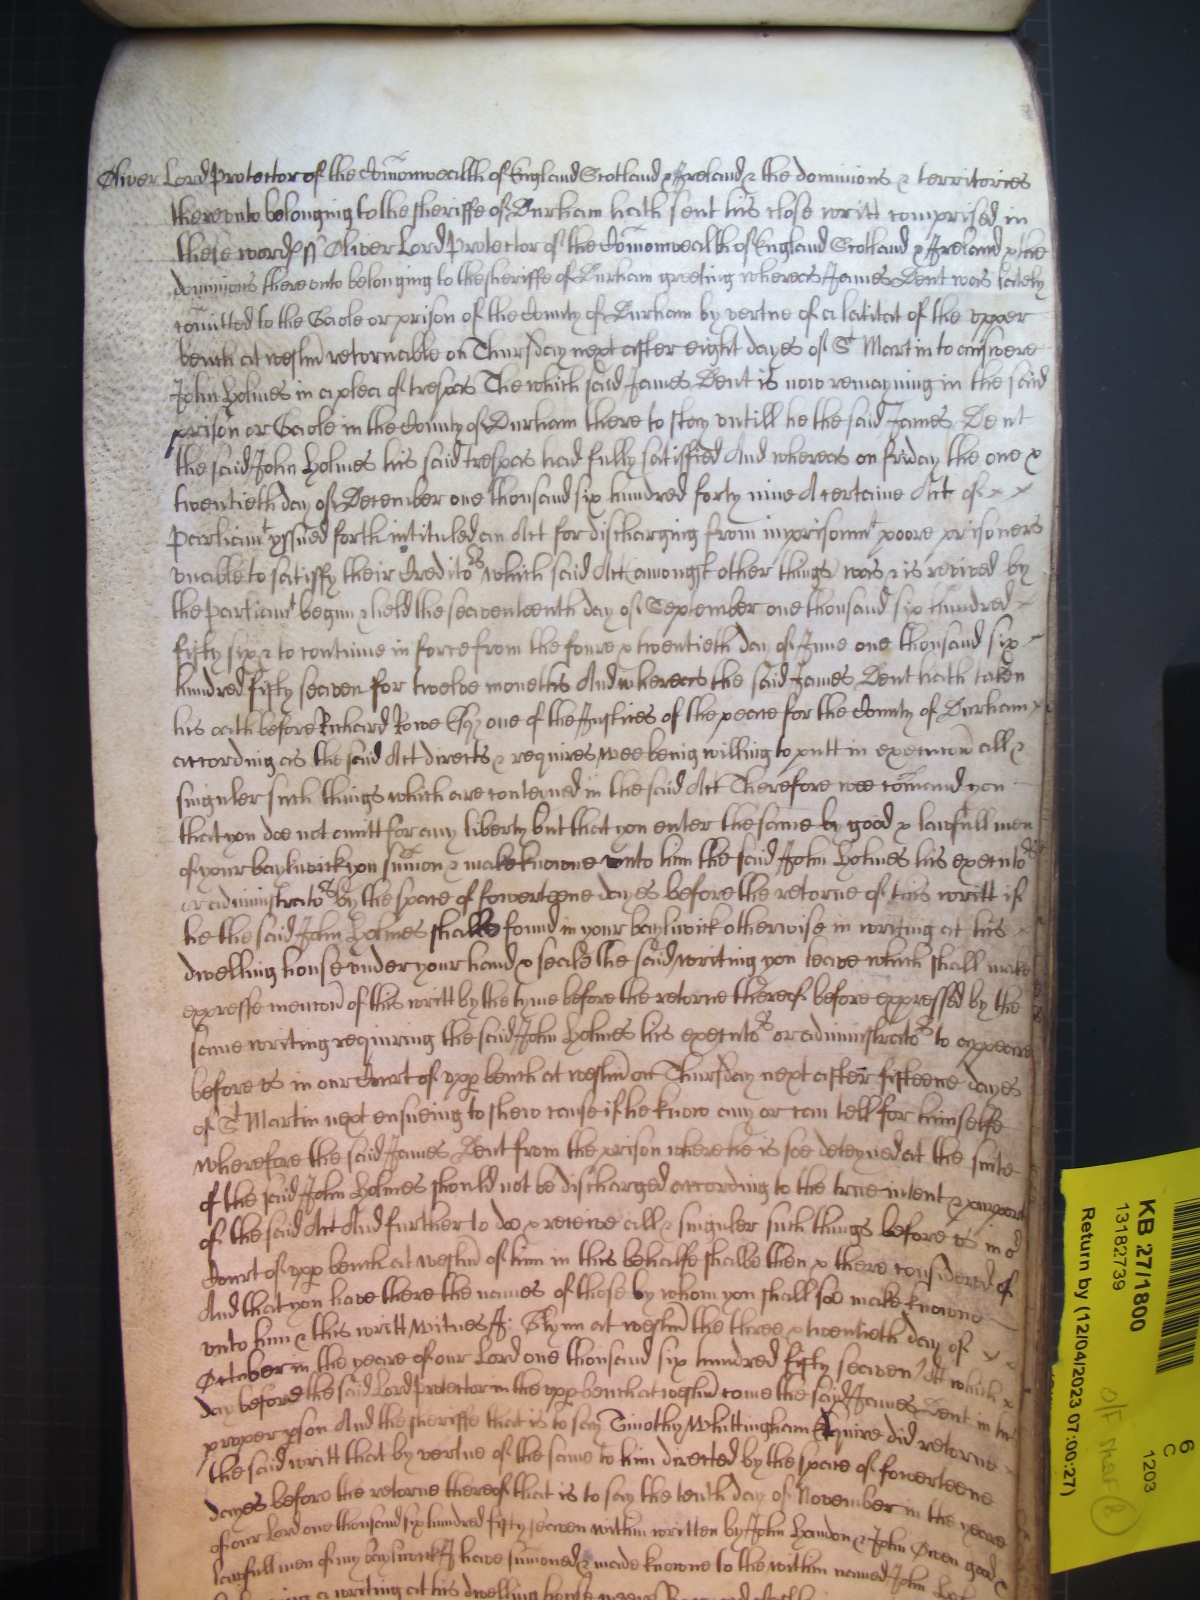 Oliver Lord Protector of the Comonwealth of England Scotland & Ireland & the dominions & territories
thereonto belonging to the sheriffe of Durham hath sent his close writt comprised in
these words ss Oliver Lord Protector of the Comonwealth of England Scotland & Ireland & the
dominions thereonto belonging to the sheriffe of Durham greeting whereas James Dent was lately
comitted to the Gaole or prison of the County of Durham by vertue of a latitat of the upper
bench at westm retornable on Thursday next after eight dayes of St Martin to answere
John Holmes in a plea of trespas The which said James Dent is now remayning in the said
prison or Gaole in the County of Durham there to stay untill he the said James Dent
the said John Holmes his said trespas had fully satisfied And whereas on Friday the one &
twentieth day of December one thousand six hundred forty nine A certaine Act of
Parliamt yssued forth intituled an Act for discharging from imprisonmt poore prisoners
unable to satisfy their Creditors which said Act (amongst other things) was & is revived by
the Parliamt begun & held the seaventeenth day of September one thousand six hundred
fifty six & to continue in force from the foure & twentieth day of June one thousand six
hundred fifty seaven for twelve moneths And whereas the said James Dent hath taken
his oath before Richard Rowe Esqr one of the Justices of the peace for the County of Durham
according as the said Act directs & requires wee being willing to putt in execucion all &
singuler such things which are conteyned in the said Act Therefore wee comand you
that you doe not omitt for any liberty but that you enter the same & by good & lawfull men
of your bayliwick you sumon & make knowne unto him the said John Holmes his executors
or administrators by the space of fowerteene dayes before the retorne of this writt if
he the said John Holmes shalbe found in your bayliwick otherwise in writing at his
dwelling house under your hand & seale the said writing you leave which shall make
expresse mencion of this writt by the tyme before the retorne thereof before expressed by the
same writing requiring the said John Holmes his executors or administrators to appeare
before us in our Court of upp bench at westm on Thursday next after fifteene dayes
of St Martin next ensueing to shew cause if he know any or can tell for himselfe
wherefore the said James Dent from the prison where he is soe deteyned at the suite
of the said John Holmes should not be discharged according to the true intent & purport
of the said Act And further to doe & receive all & singuler such things before us in or
Court of upp bench at westm of him in this behalfe shalbe then & there considered of
And that you have there the names of those by whom you shall soe make knowne
unto him & this writt Witnes J: Glynn at westm the three & twentieth day of
October in the yeare of our Lord one thousand six hundred fifty seaven Att which
day before the said Lord Protector in the upp bench at westm come the said James Dent in his
proper pson And the sheriffe that is to say Timothy Whittingham Esquire did retorne
the said writt that by vertue of the same to him directed by the space of fowerteene
dayes before the retorne thereof that is to say the tenth day of November in the yeare
of our Lord one thousand six hundred fifty seaven within written by John & John Owen good &
lawfull men of my bayliwick I have sumoned & made knowne to the within named John
a writing at his dwelling house
KB 27/1800
13182739
Return by (12/04/2023 07:00:27)
6
C
1203